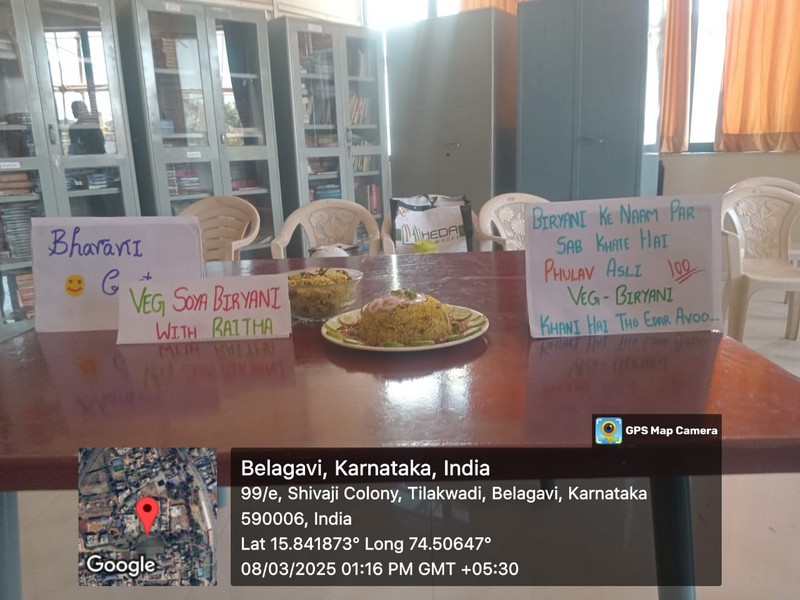 Bharani
VEG SOYA BIRYANI
WITH RAITHA
HEDA
BIRYANI KE NAAM PAR
SAB KHATE HAI
PHULAV ASLI 100
VEG - BIRYANI
KHANI HAI THO EDAR AVOO...
GPS Map Camera
Google
Belagavi, Karnataka, India
99/e, Shivaji Colony, Tilakwadi, Belagavi, Karnataka
590006, India
Lat 15.841873° Long 74.50647°
08/03/2025 01:16 PM GMT +05:30